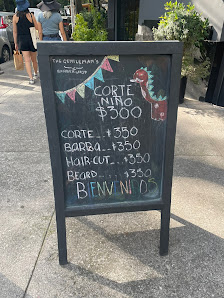 THE GENTLEMAN'S
CORTE
NIÑO
$300
CORTE..$350
BARBA..$350
HAIRCUT..$350
BEARD...$350
BIENVENIDOS